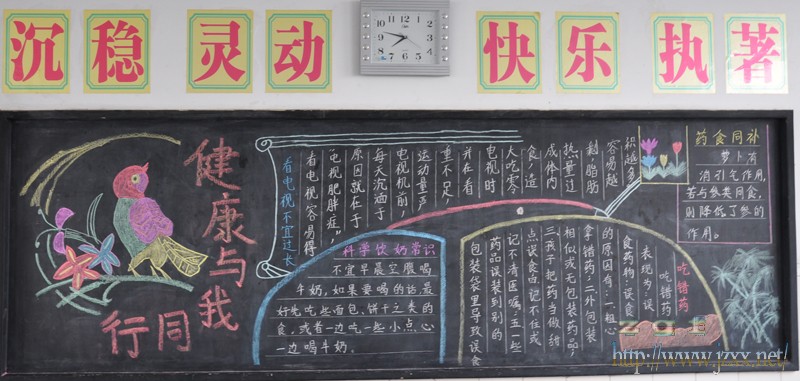 沉稳 灵动 快乐 执著
健康与我
同行
看电视不宜过长
看电视容易得
"电视肥胖症",
原因就在于
每天沉湎于
电视机前,
运动量严
重不足,
并在看
电视时
大吃零
食,造
成体内
热量过
剩,脂肪
容易越
积越多。
科学饮奶常识
不宜早晨空腹喝
牛奶,如果要喝的话最
好先吃些面包、饼干之类的
食,或者一边吃一些小点心
一边喝牛奶。
吃错药
吃错药
表现为:误
食药物;误食
的原因有:一粗心
拿错药;二外包装
相似或无包装药品;
三孩子把药当做甜
点误食;四记不住或
记不清医嘱;五一些
药品误装到别的
包装袋里导致误食
药食同补
萝卜有
消引气作用,
若与参类同食,
则降低了参的
作用。